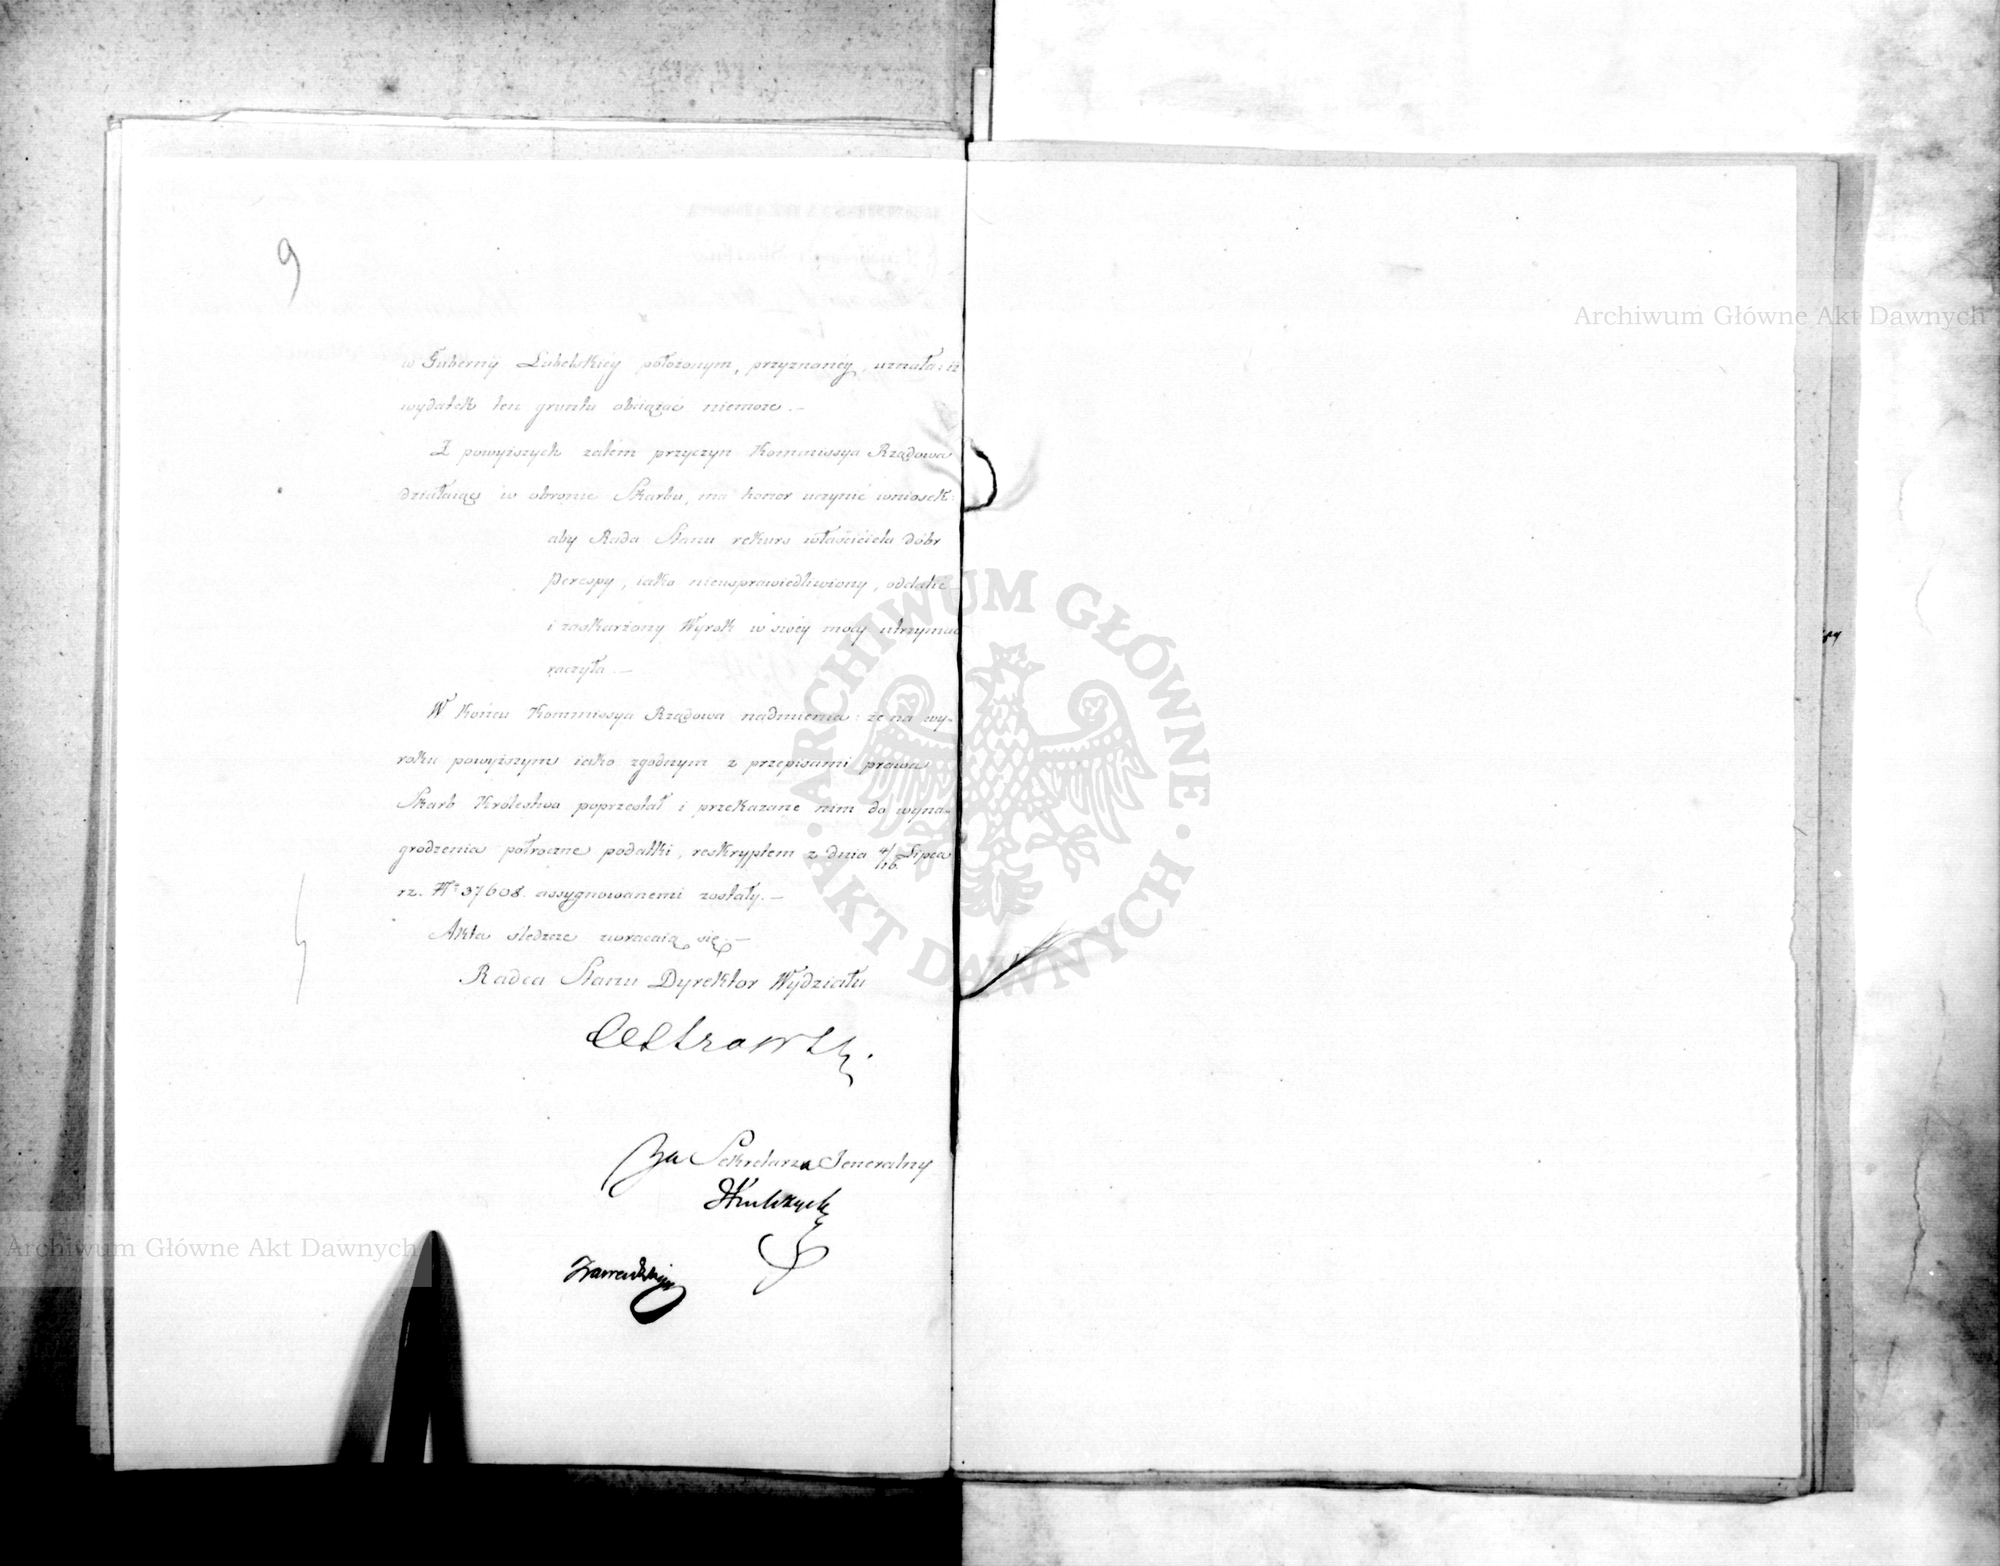 9
w Gubernij Lubelskiéy położonym, przyznanéy, uznała: iż
wydatek ten gruntu obciążać niemoże. —
Z powyższych zatém przyczyn Kommissya Rządowa
działaiąc w obronie Skarbu, ma honor uczynić wniosek:
aby Rada Stanu rekurs właściciela dóbr
Perespy, iako nieusprawiedliwiony, oddalić
i zaskarżony Wyrok w swéy mocy utrzymać
raczyła —
W końcu Kommissya Rządowa nadmienia: że na wy-
roku powyższym iako zgodnym z przepisami prawa
Skarb Królestwa poprzestał i przekazane nim do wyna-
grodzenia półroczne podatki, reskryptem z dnia 4/16 Lipca
rz. Nº 37608. assygnowanemi zostały. —
Akta śledcze zwracaią się. —
Radca Stanu Dyrektor Wydziału
Za Sekretarza Jeneralny
Archiwum Główne Akt Dawnych
ARCHIWUM GŁÓWNE · AKT DAWNYCH ·
Archiwum Główne Akt Dawnych